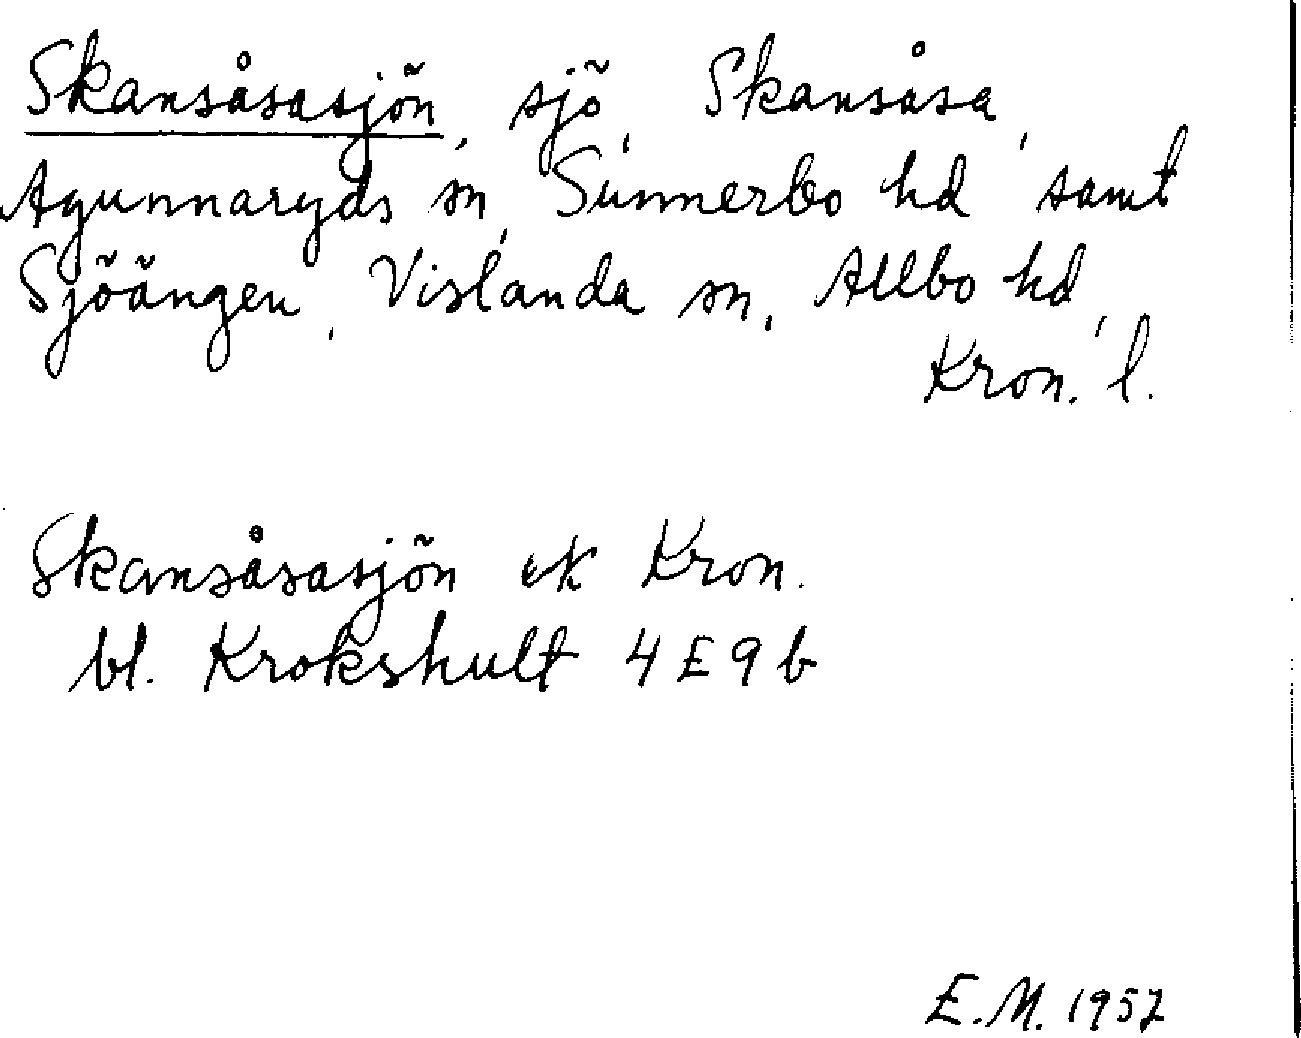 Skansåsasjön, sjö, Skansåsa,
Agunnaryds sn, Sunnerbo hd samt
Sjöängen, Vislanda sn, Allbo hd,
Kron. l.
Skansåsasjön ek Kron.
bl. Krokshult 4E9b
E.M. 1957